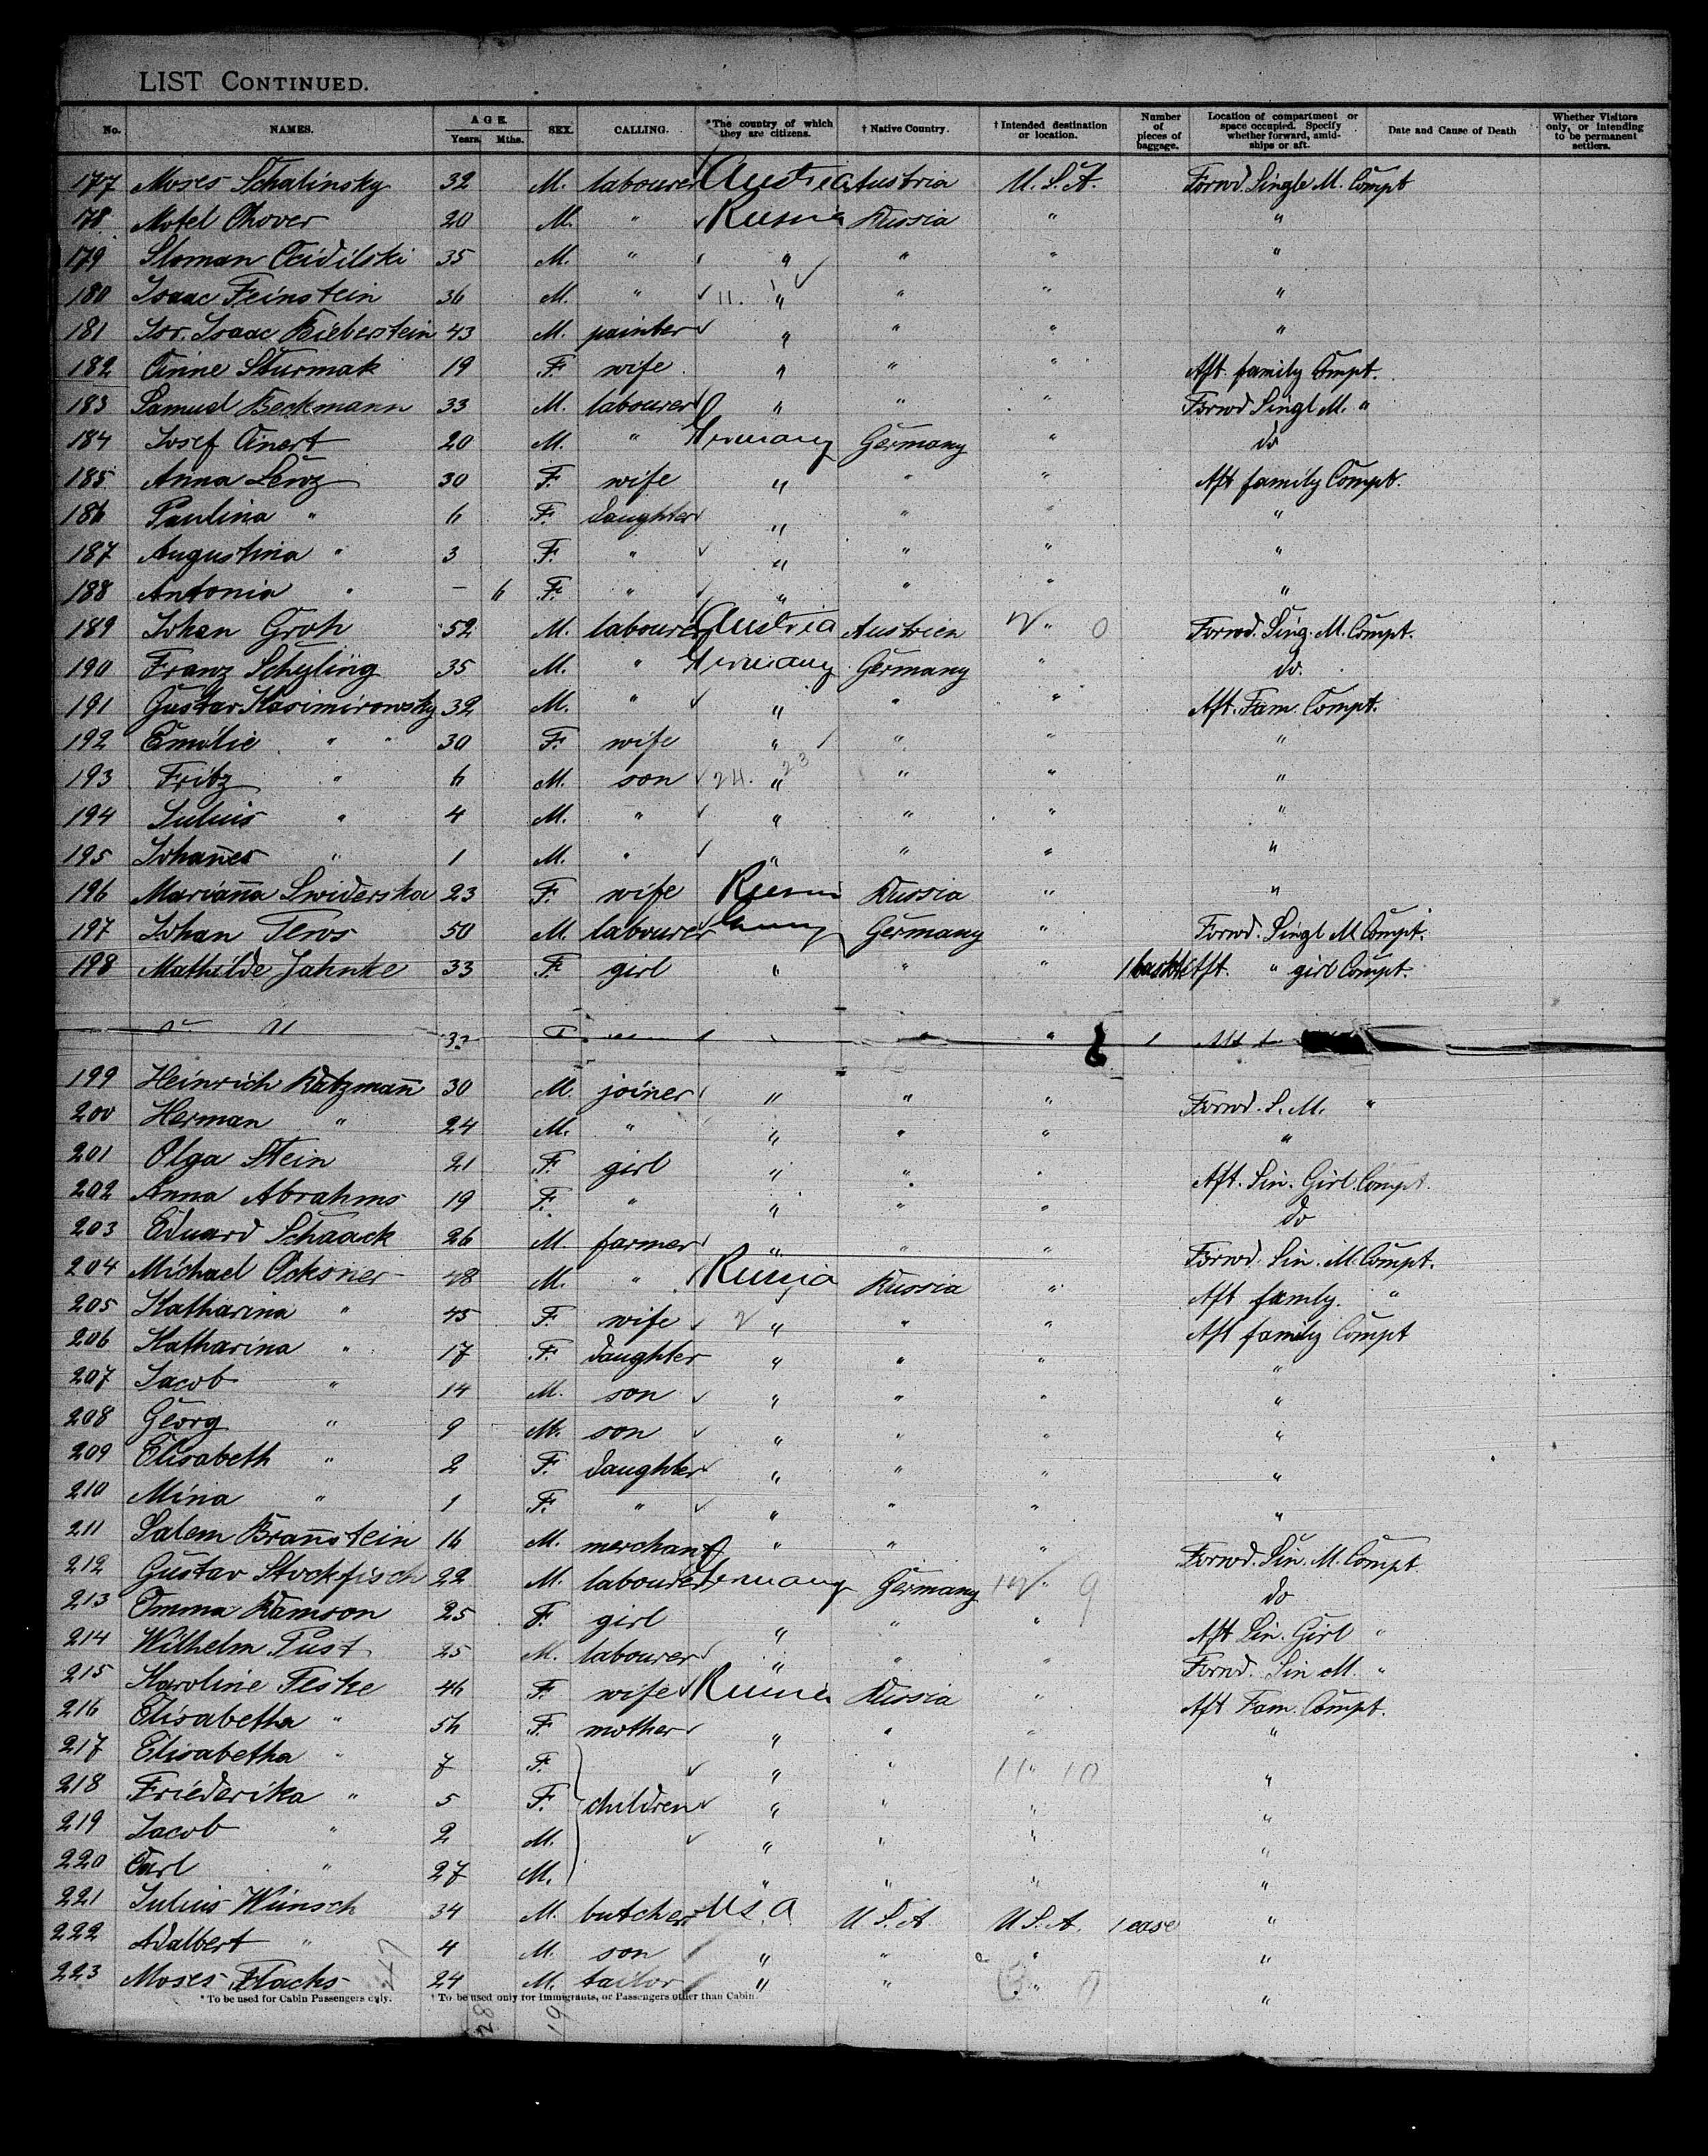 LIST CONTINUED.
No. NAMES. AGE. Years. Mths. SEX. CALLING. *The country of which they are citizens. † Native Country. † Intended destination or location. Number of pieces of baggage. Location of compartment or space occupied. Specify whether forward, amidships or aft. Date and Cause of Death Whether Visitors only, or intending to be permanent settlers.
177 Moses Schalinsky 32 M. labourer Austria Austria U.S.A. Forwd. Single M. Compt
178 Motel Chover 20 M. " Russia Russia " "
179 Sloman 35 M. " " " " "
180 Isaac Feinstein 36 M. " 11. " " " "
181 Isr. Isaac Bieberstein 43 M. painter " " " "
182 Anne Sturmak 19 F. wife " " " Aft family Compt.
183 Samuel Beckmann 33 M. labourer " " " Forwd Singl M. "
184 Josef Anert 20 M. " Germany Germany " do
185 Anna Lenz 30 F. wife " " " Aft family Compt.
186 Paulina " 6 F. daughter " " " "
187 Augustina " 3 F. " " " " "
188 Antonia " – 6 F. " " " " "
189 Johan Groh 52 M. labourer Austria Austrien " 0 Forwd. Sing. M. Compt.
190 Franz Schyling 35 M. " Germany Germany " do.
191 Gustav Kasimirowsky 32 M. " " " " Aft. Fam. Compt.
192 Emilie " " 30 F. wife " " " "
193 Fritz " 6 M. son 24. 23 " " " "
194 Julius " 4 M. " " " " "
195 Johanes " 1 M. " " " " "
196 Mariana Swiderska 23 F. wife Russia Russia " "
197 Johan Tews 50 M. labourer Germany " Forwd. Singl M Compt.
198 Mathilde Jahnke 33 F. girl " " " 1 Aft. " girl Compt.
199 Heinrich Katzman 30 M. joiner " " " Forwd. S. M. "
200 Herman " 24 M. " " " " "
201 Olga Stein 21 F. girl " " " Aft. Sin. Girl. Compt.
202 Anna Abrahms 19 F. " " " " do
203 Eduard Schaack 26 M. farmer " " " Forwd. Sin. M. Compt.
204 Michael Ocksner 48 M. " Russia Russia " Aft family. "
205 Katharina " 45 F. wife 2 " " " Aft family Compt
206 Katharina " 17 F. daughter " " " "
207 Jacob " 14 M. son " " " "
208 Georg " 9 M. son " " " "
209 Elisabeth " 2 F. daughter " " " "
210 Mina " 1 F. " " " " "
211 Salem Branstein 16 M. merchant " " " Forwd. Sin. M. Compt
212 Gustav Stockfisch 22 M. labourer Germany Germany " 9 do
213 Emma Ramson 25 F. girl " " " Aft Sin. Girl "
214 Wilhelm Pust 25 M. labourer " " " Forwd. Sin M. "
215 Karoline Feske 46 F. wife Russia Russia " Aft Fam. Compt.
216 Elisabetha " 56 F. mother " " " "
217 Elisabetha " 7 F. " " 11 " 10 "
218 Friederika " 5 F. children " " " "
219 Jacob " 2 M. " " " "
220 Carl " 27 M. " " " "
221 Julius Wünsch 34 M. butcher U.S.A U.S.A U.S.A. 1 case "
222 Adalbert " 4 M. son " " " "
223 Moses Flachs 24 M. tailor " " " "
* To be used for Cabin Passengers only. † To be used only for Immigrants, or Passengers other than Cabin.
28 19